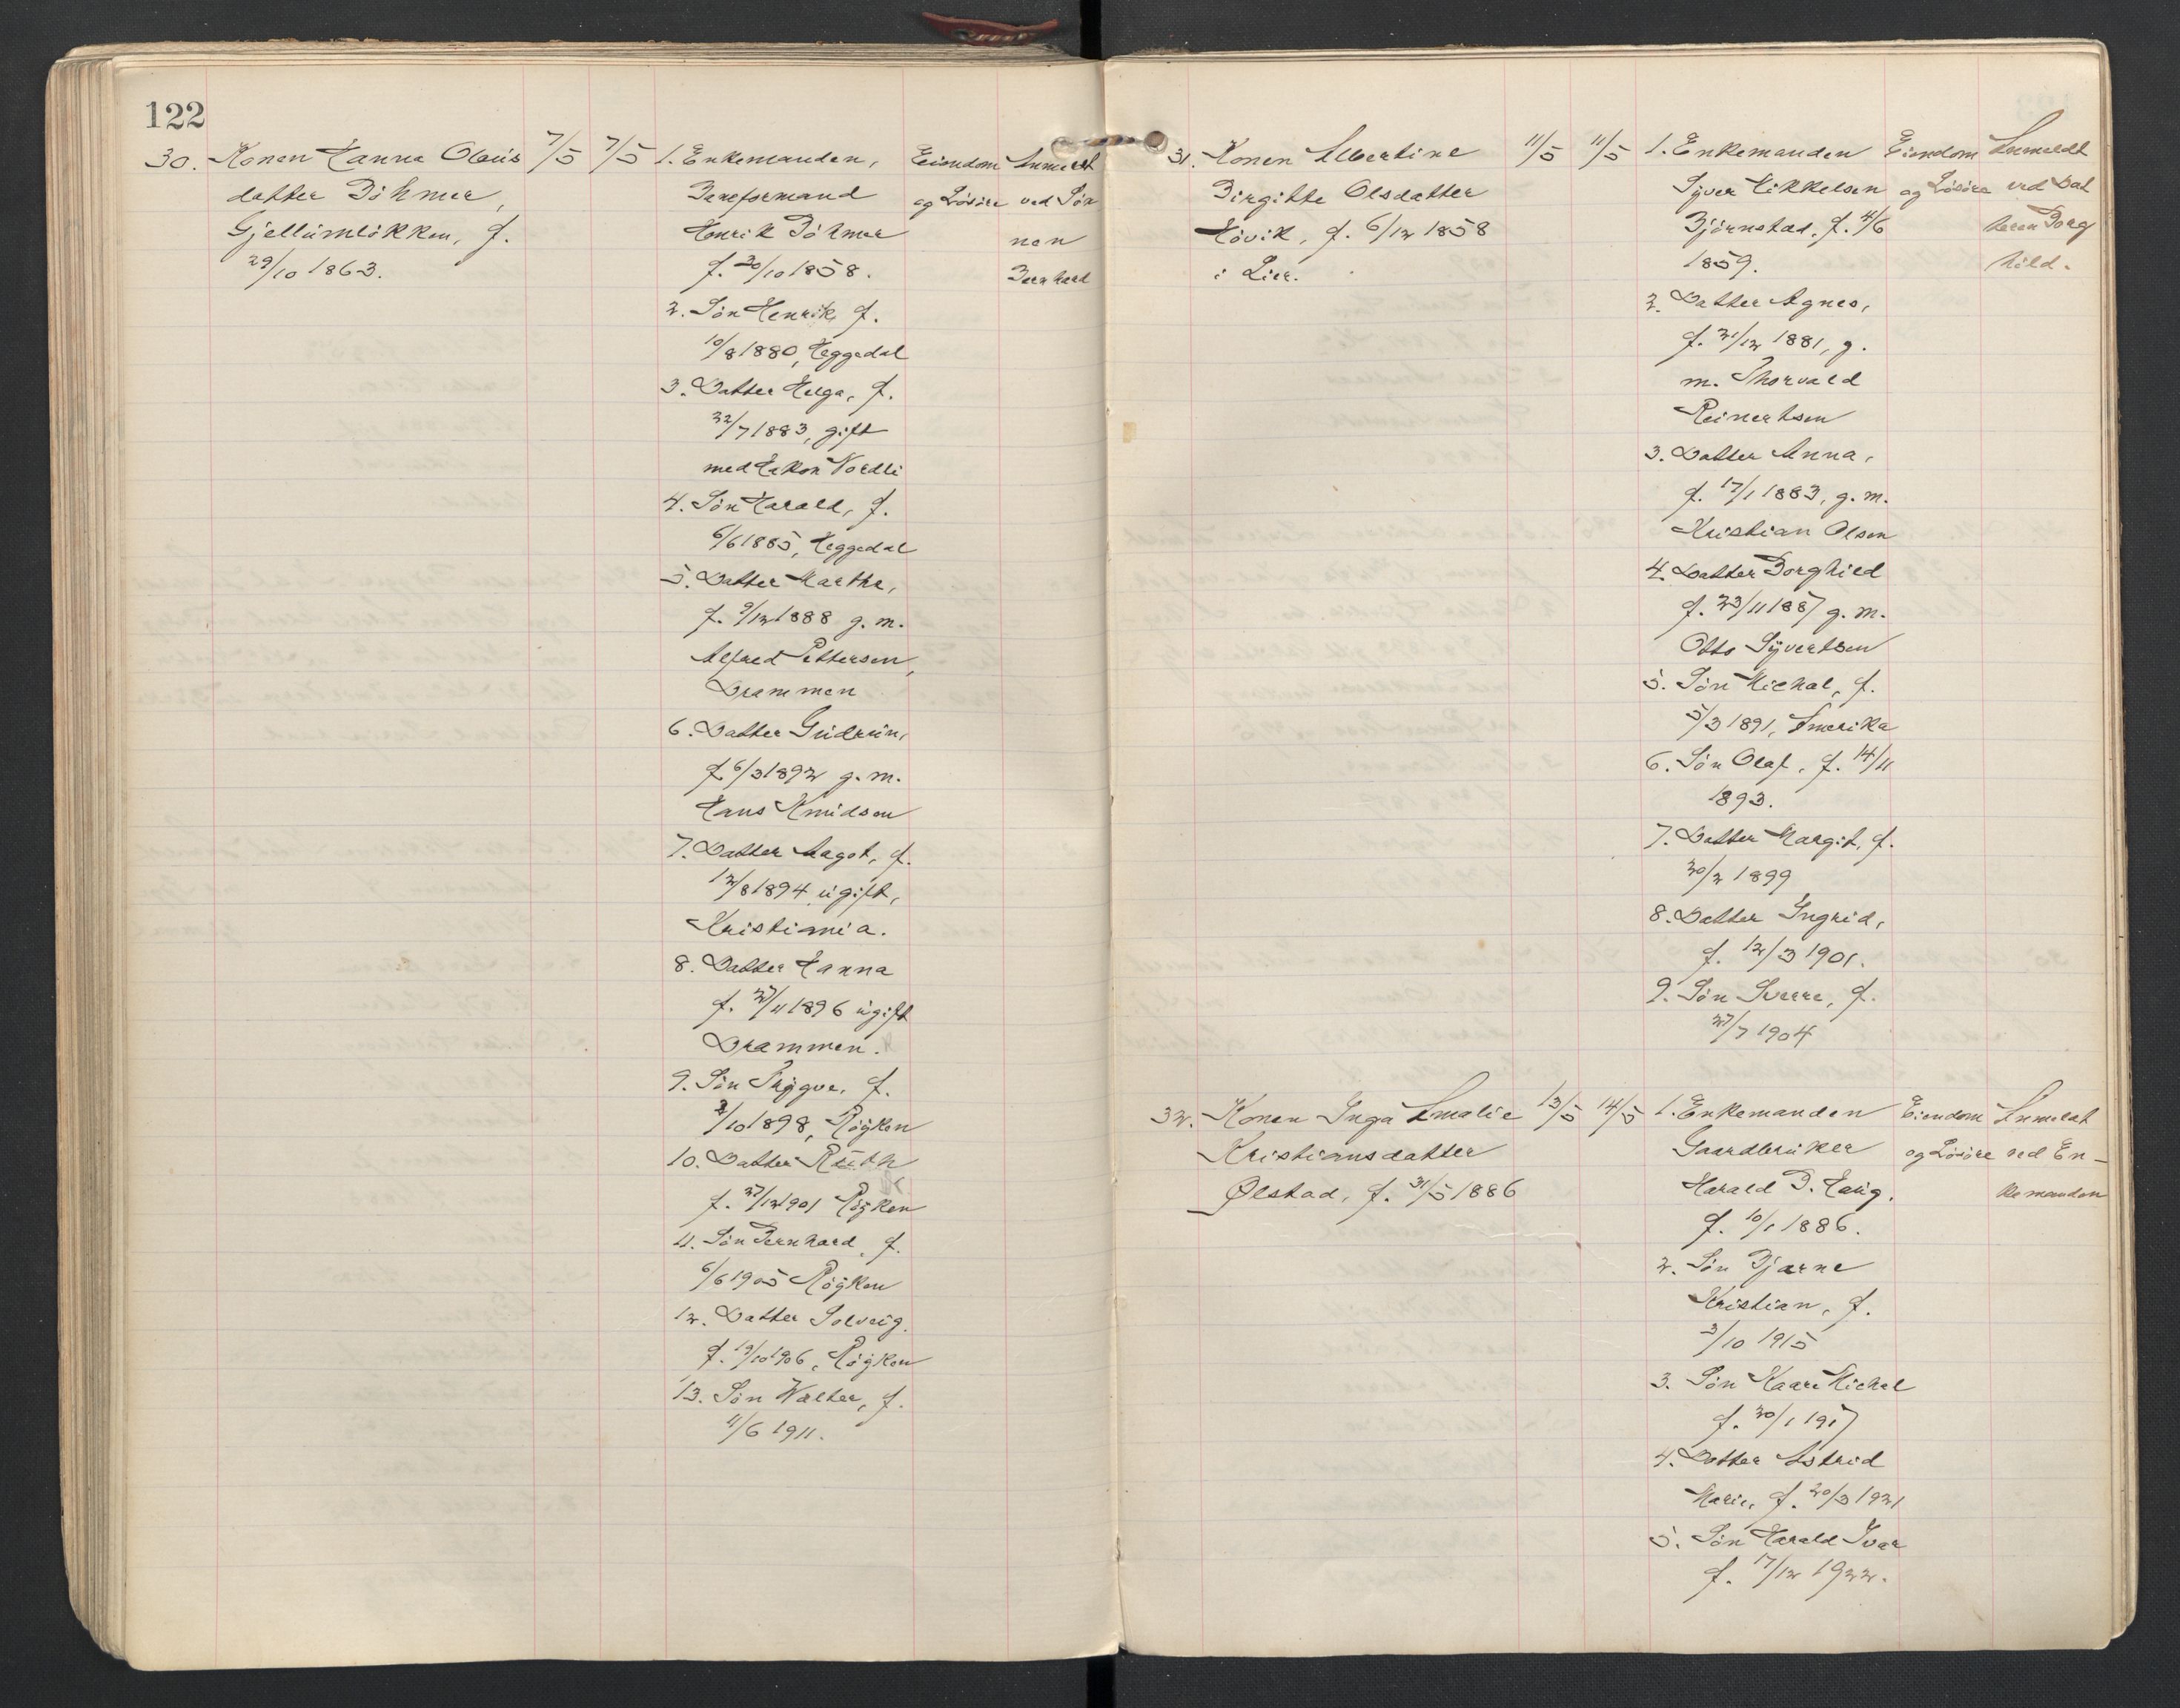 122
30. Konen Hanna Olaus
datter Böhmer,
Gjellumløkken, f.
29/10 1863.
7/5 7/5
1. Enkemanden,
Baneformand
Henrik Böhmer
f. 30/10 1858.
2. Søn Henrik, f.
10/8 1880, Heggedal
3. Datter Helga, f.
22/7 1883, gift
med Hakon Nordli
4. Søn Harald, f.
6/6 1885, Heggedal
5. Datter Marthe,
f. 9/12 1888 g. m.
Alfred Pettersen,
Drammen
6. Datter Gudrun,
f. 6/3 1892 g. m.
Hans Knudsen
7. Datter Aagot, f.
12/8 1894 ugift,
Kristiania.
8. Datter Hanna
f. 27/11 1896 ugift
Drammen.
9. Søn Trygve, f.
2/10 1898, Røyken
10. Datter Ruth
f. 27/12 1901 Røyken
11. Søn Bernhard, f.
6/6 1905 Røyken
12. Datter Solveig.
f. 19/10 1906, Røyken
13. Søn Walter, f.
11/6 1911.
Eiendom
og Løsøre
Anmeldt
ved Søn
nen
Bernhard
31. Konen Albertine
Birgitte Olsdatter
Høvik, f. 6/12 1858
i Lier.
11/5 11/5
1. Enkemanden
Syver Mikkelsen
Bjørnstad, f. 4/6
1859.
2. Datter Agnes,
f. 21/12 1881, g.
m. Thorvald
Reinertsen
3. Datter Anna,
f. 17/1 1883, g. m.
Kristian Olsen
4. Datter Borghild
f. 23/11 1887 g. m.
Otto Syvertsen
5. Søn Michal, f.
5/3 1891, Amerika
6. Søn Olaf, f. 14/11
1893.
7. Datter Margit, f.
20/2 1899
8. Datter Ingrid,
f. 12/3 1901.
9. Søn Sverre, f.
27/7 1904
Eiendom
og Løsøre
Anmeldt
ved Dat
teren Borg
hild.
32. Konen Inga Amalie
Kristiansdatter
Ølstad, f. 31/5 1886
13/5 14/5
1. Enkemanden
Gaardbruker
Harald D. Haug.
f. 10/1 1886.
2. Søn Bjarne
Kristian, f.
3/10 1915
3. Søn Kaare Michal
f. 30/1 1917
4. Datter Astrid
Marie, f. 20/3 1921
5. Søn Harald Ivar
f. 17/12 1922.
Eiendom
og Løsøre
Anmeldt
ved En-
kemanden